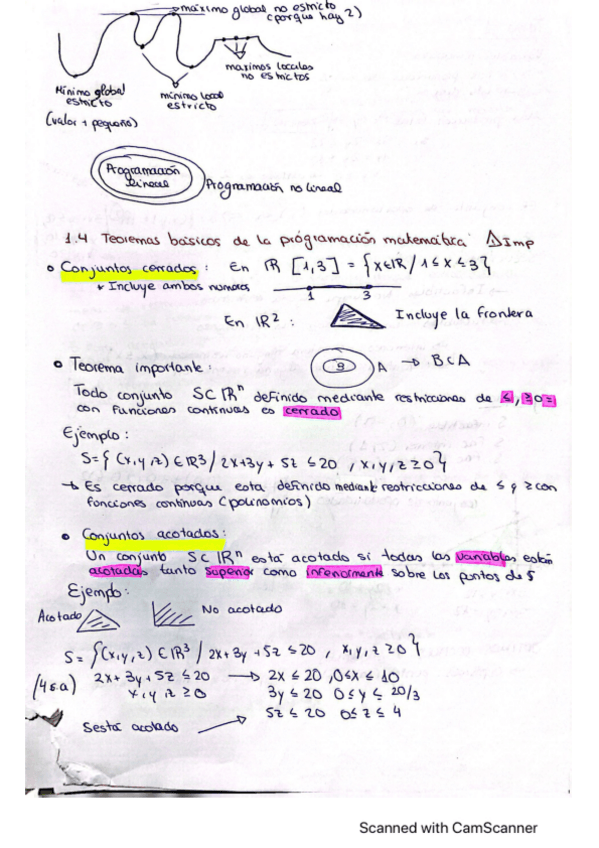 máximo global no estricto
(porque hay 2)
maximos locales
no estrictos
Mínimo global
estricto
(valor + pequeño)
mínimo local
estricto
Programación
lineal
Programación no lineal
1.4 Teoremas básicos de la programación matemática ΔImp
Conjuntos cerrados: En ℝ [1,3] = {x∈ℝ / 1≤x≤3}
* Incluye ambos numeros
1 3
En ℝ²: Incluye la frontera
Teorema importante: B A → B⊂A
Todo conjunto S⊂ℝⁿ definido mediante restricciones de ≤, ≥ o =
con funciones continuas es cerrado
Ejemplo:
S={(x,y,z)∈ℝ³ / 2x+3y+5z ≤20, x,y,z≥0}
→ Es cerrado porque esta definido mediante restricciones de ≤ y ≥ con
funciones continuas (polinomios)
Conjuntos acotados:
Un conjunto S⊂ℝⁿ está acotado si todas las variables están
acotadas tanto superior como inferiormente sobre los puntos de S
Ejemplo:
Acotado No acotado
S={(x,y,z)∈ℝ³ / 2x+3y+5z ≤20, x,y,z≥0}
2x+3y+5z ≤20 → 2x≤20, 0≤x≤10
x,y,z≥0 3y≤20 0≤y≤20/3
5z≤20 0≤z≤4
S está acotado
Scanned with CamScanner